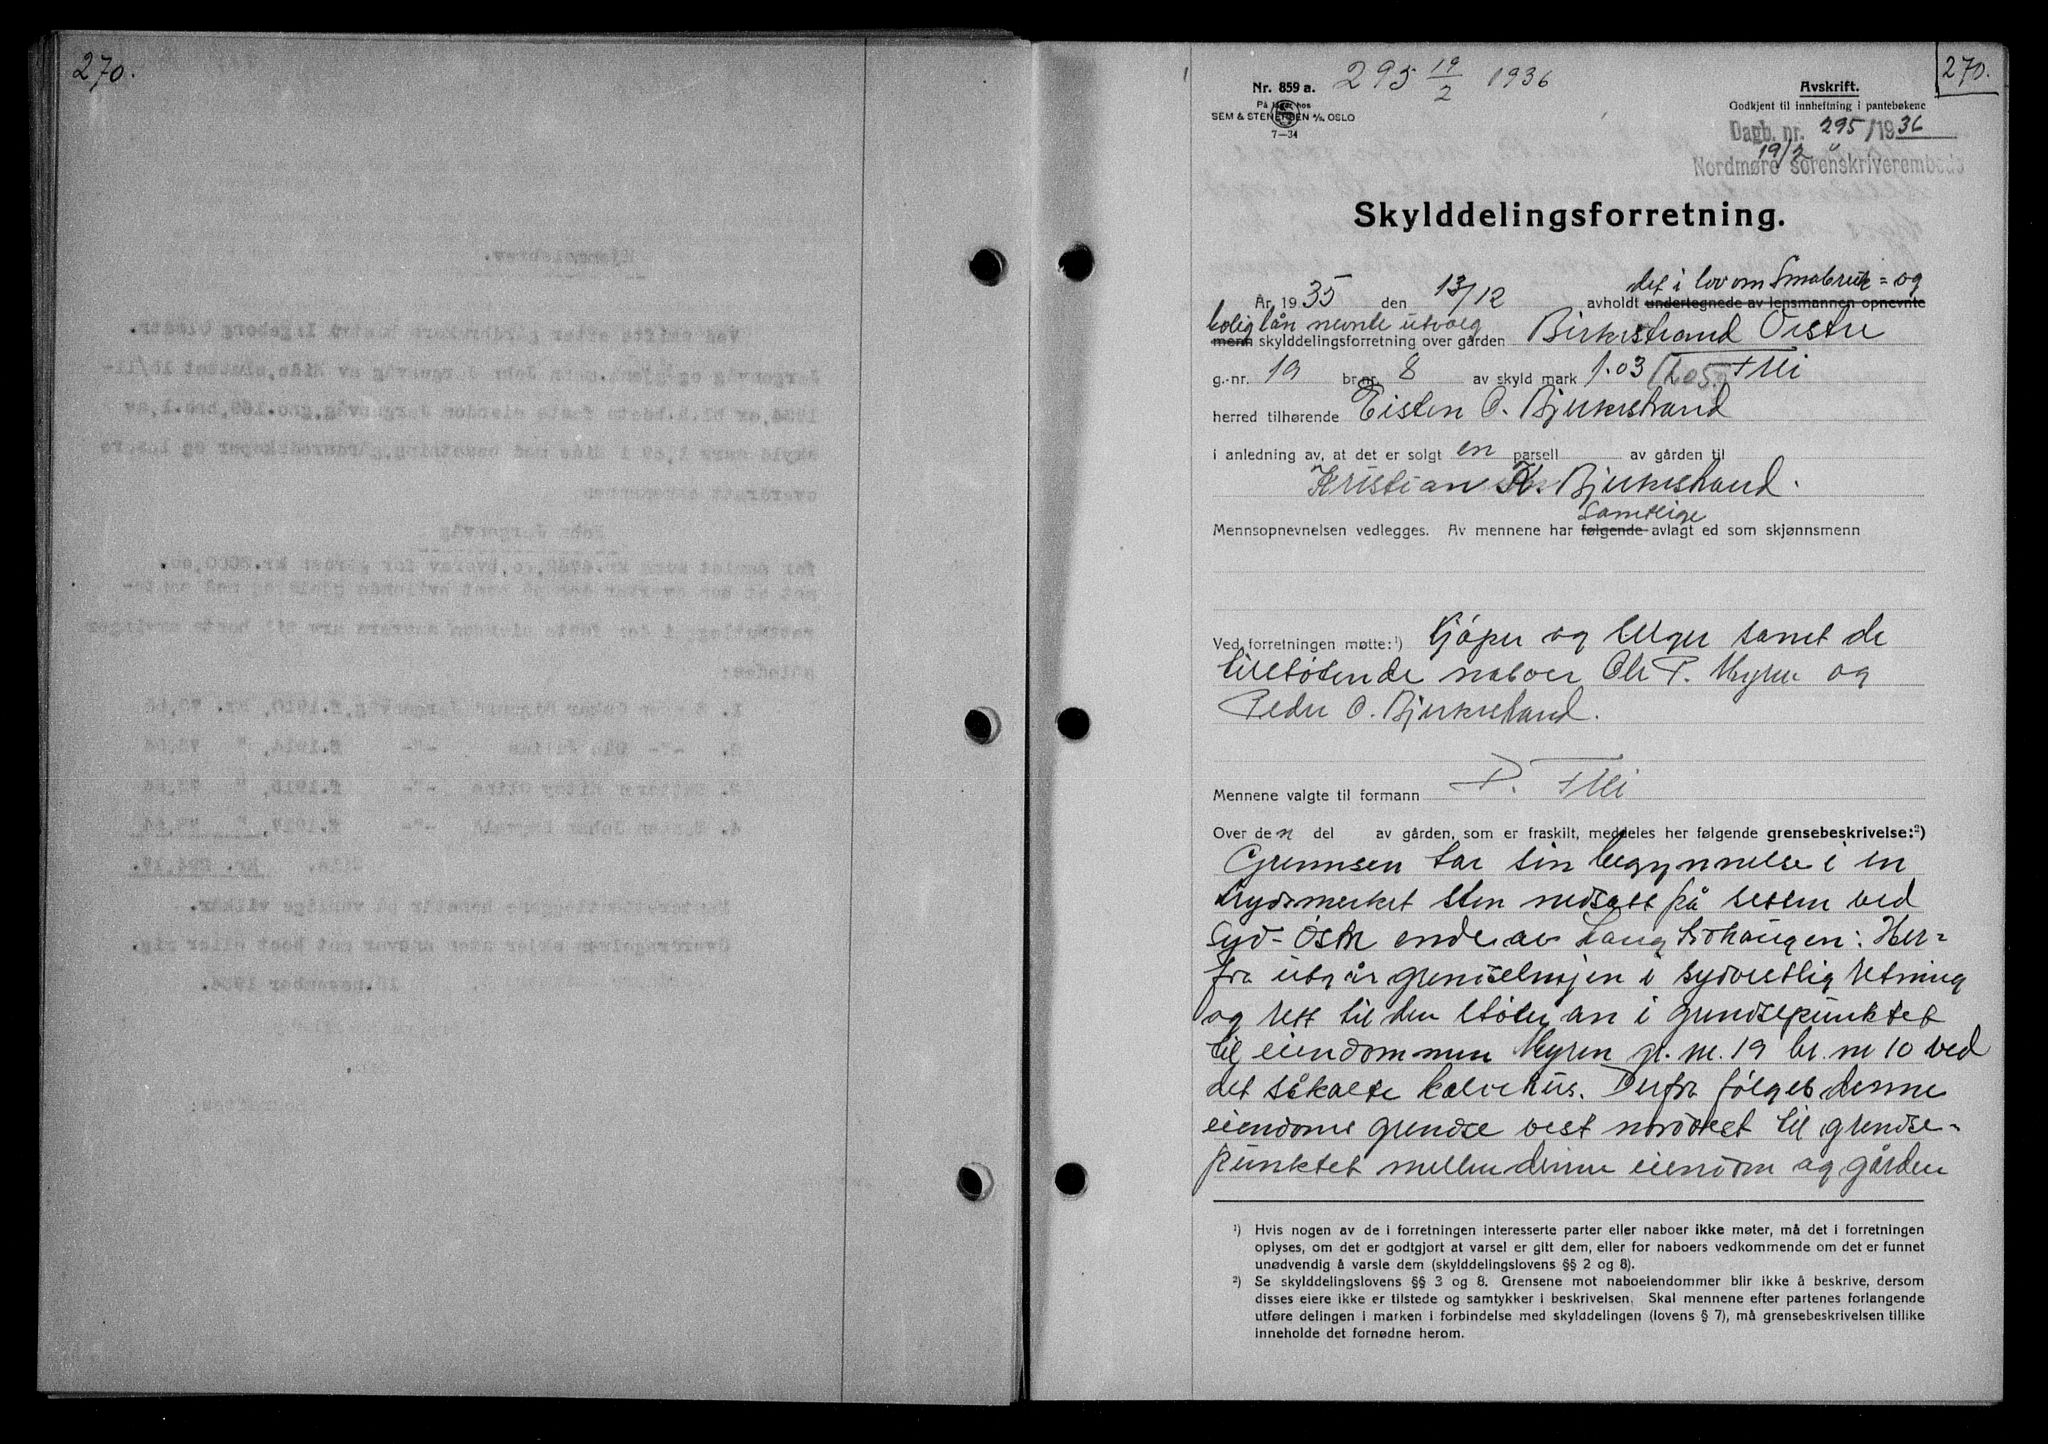 270.
295 19/2 1936
270.
Nr. 859 a.
På lager hos
SEM & STENERSEN A/S. OSLO
7—34
Avskrift.
Godkjent til innheftning i pantebøkene
Dagb. nr. 295/1936
19/2
Nordmøre sorenskriverembede
Skylddelingsforretning.
det i lov om Småbruk- og
År 1935 den 13/12 avholdt undertegnede av lensmannen opnevnte
boliglån nevnte utvalg
menn skylddelingsforretning over gården Birkestrand Østre
g.-nr. 19 br.nr. 8 av skyld mark 1.03 Frei
herred tilhørende Eisten O. Bjerkestrand
i anledning av, at det er solgt en parsell av gården til
Kristian K. Bjerkestrand.
Samtlige
Mennsopnevnelsen vedlegges. Av mennene har følgende avlagt ed som skjønnsmenn
Ved forretningen møtte:¹) Kjøper og selger samt de
tilstøtende naboer Ole P. Myren og
Peder O. Bjerkestrand.
Mennene valgte til formann P. Frei
Over den del av gården, som er fraskilt, meddeles her følgende grensebeskrivelse:²)
Grensen tar sin begynnelse i en
krydsmerket sten nedsatt på sletten ved
syd-østre ende av Langhohaugen: Her-
fra utgår grenselinjen i sydvestlig retning
og rett til den støter an i grendsepunktet
til eiendommen Myren gr. nr. 19 br. nr 10 ved
det såkalte kalvehus. Derfra følges denne
eiendoms grendse vest nordvest til grendse-
punktet mellem denne eiendom og gården
¹) Hvis nogen av de i forretningen interesserte parter eller naboer ikke møter, må det i forretningen
oplyses, om det er godtgjort at varsel er gitt dem, eller for naboers vedkommende om det er funnet
unødvendig å varsle dem (skylddelingslovens §§ 2 og 8).
²) Se skylddelingslovens §§ 3 og 8. Grensene mot naboeiendommer blir ikke å beskrive, dersom
disses eiere ikke er tilstede og samtykker i beskrivelsen. Skal mennene efter partenes forlangende
utføre delingen i marken i forbindelse med skylddelingen (lovens § 7), må grensebeskrivelsen tillike
inneholde det fornødne herom.